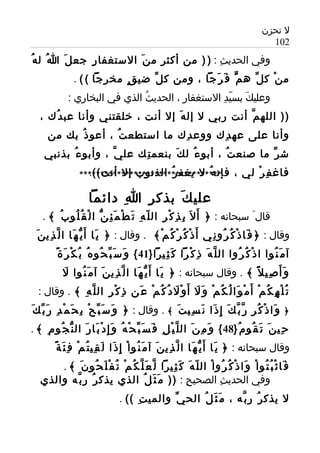 لا تحزن
102
وفي الحديثِ : (( من أكثر منَ الاستغفارِ جعلَ اللهُ لهُ
منْ كلِّ همٍّ فَرَجًا ، ومن كلِّ ضيقٍ مخرجًا )) .
وعليكَ بسيِّدِ الاستغفارِ ، الحديثُ الذي في البخاري :
(( اللهمَّ أنت ربي لا إلهَ إلا أنت ، خلقتني وأنا عبدُك ،
وأنا على عهدِك ووعدِك ما استطعتُ ، أعوذُ بك من
شرِّ ما صنعتُ ، أبوءُ لكَ بنعمتِك عليَّ ، وأبوءُ بذنبي
فاغفِرْ لي ، فإنه لا يغفرُ الذنوبَ إلا أنت)) .
عليكَ بذكرِ اللهِ دائمًا
قالَ سبحانه : ﴿ أَلاَ بِذِكْرِ اللّهِ تَطْمَئِنُّ الْقُلُوبُ ﴾ .
وقال : ﴿فَاذْكُرُونِي أَذْكُرْكُمْ﴾ . وقال : ﴿ يَا أَيُّهَا الَّذِينَ
آمَنُوا اذْكُرُوا اللَّهَ ذِكْرًا كَثِيرًا{41} وَسَبِّحُوهُ بُكْرَةً
وَأَصِيلاً ﴾ . وقال سبحانه : ﴿ يَا أَيُّهَا الَّذِينَ آمَنُوا لَا
تُلْهِكُمْ أَمْوَالُكُمْ وَلَا أَوْلَادُكُمْ عَن ذِكْرِ اللَّهِ ﴾ . وقال :
﴿ وَاذْكُر رَّبَّكَ إِذَا نَسِيتَ ﴾ . وقال : ﴿ وَسَبِّحْ بِحَمْدِ رَبِّكَ
حِينَ تَقُومُ{48} وَمِنَ اللَّيْلِ فَسَبِّحْهُ وَإِدْبَارَ النُّجُومِ ﴾ .
وقال سبحانه : ﴿ يَا أَيُّهَا الَّذِينَ آمَنُواْ إِذَا لَقِيتُمْ فِئَةً
فَاثْبُتُواْ وَاذْكُرُواْ اللّهَ كَثِيرًا لَّعَلَّكُمْ تُفْلَحُونَ ﴾ .
وفي الحديثِ الصحيحِ : (( مَثَلُ الذي يذكرُ ربَّه والذي
لا يذكرُ ربَّه ، مَثَلُ الحيِّ والميتِ )) .